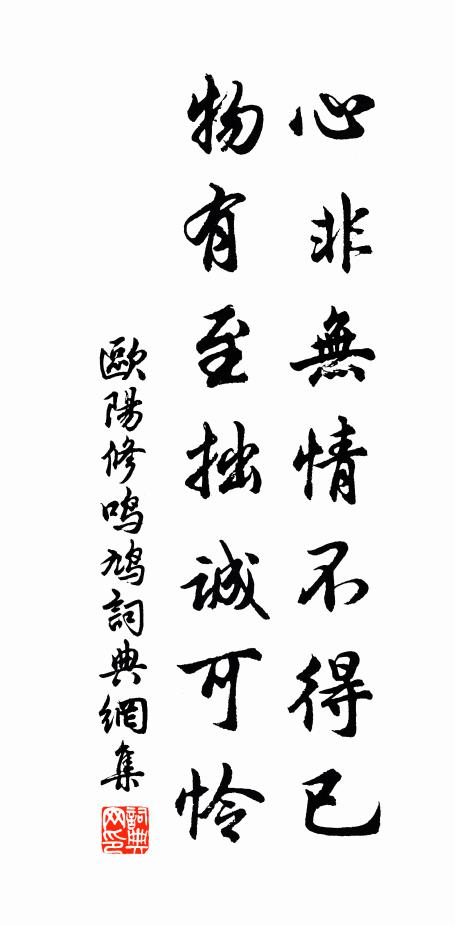 心非無情不得已
物有至拙誠可怜
歐陽修鸣鸠詞典網集
詞典网印